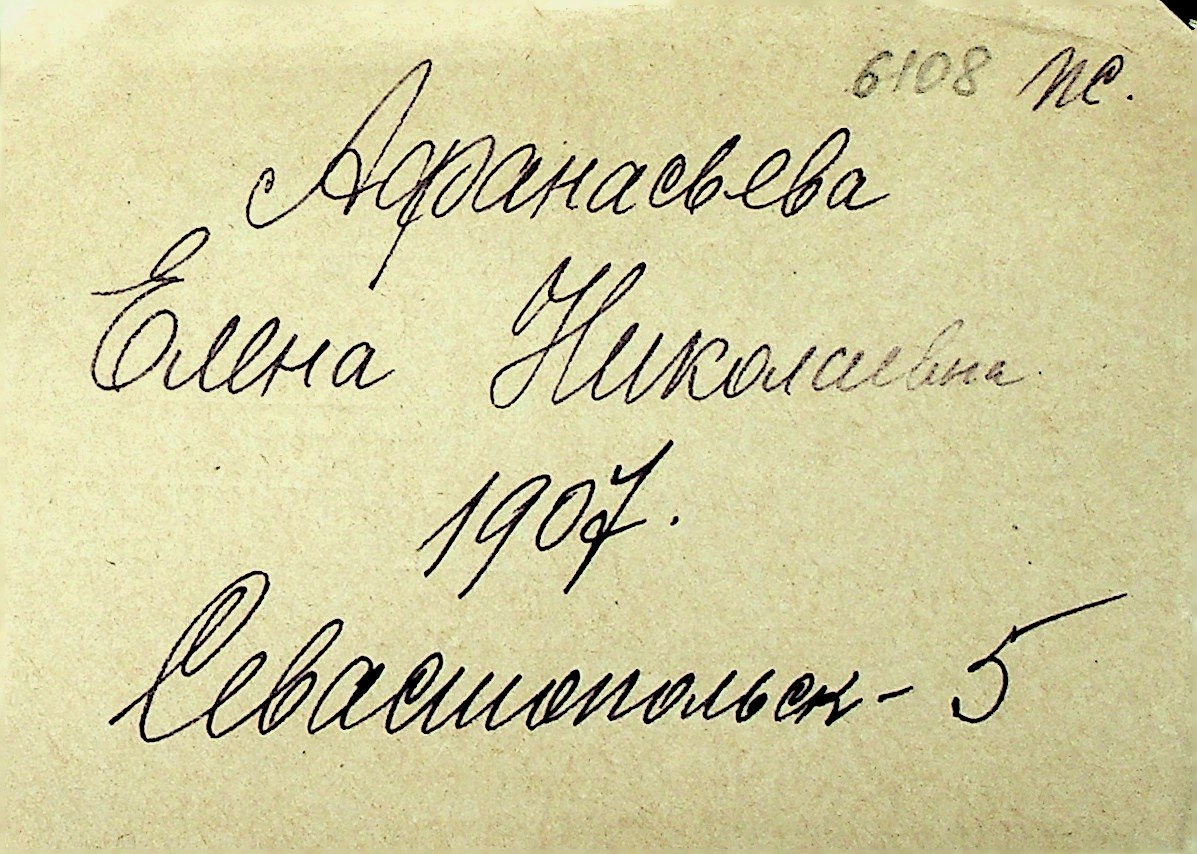 6108 пс.
Афранасьева
Елена Николаевна
1907.
Севастопольск- 5